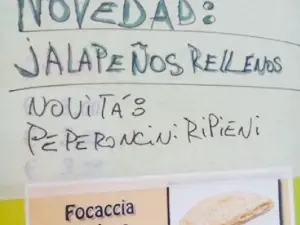 NOVEDAD:
JALAPEÑOS RELLENOS
NOVITÁ:
PEPERONCINI RIPIENI
Focaccia